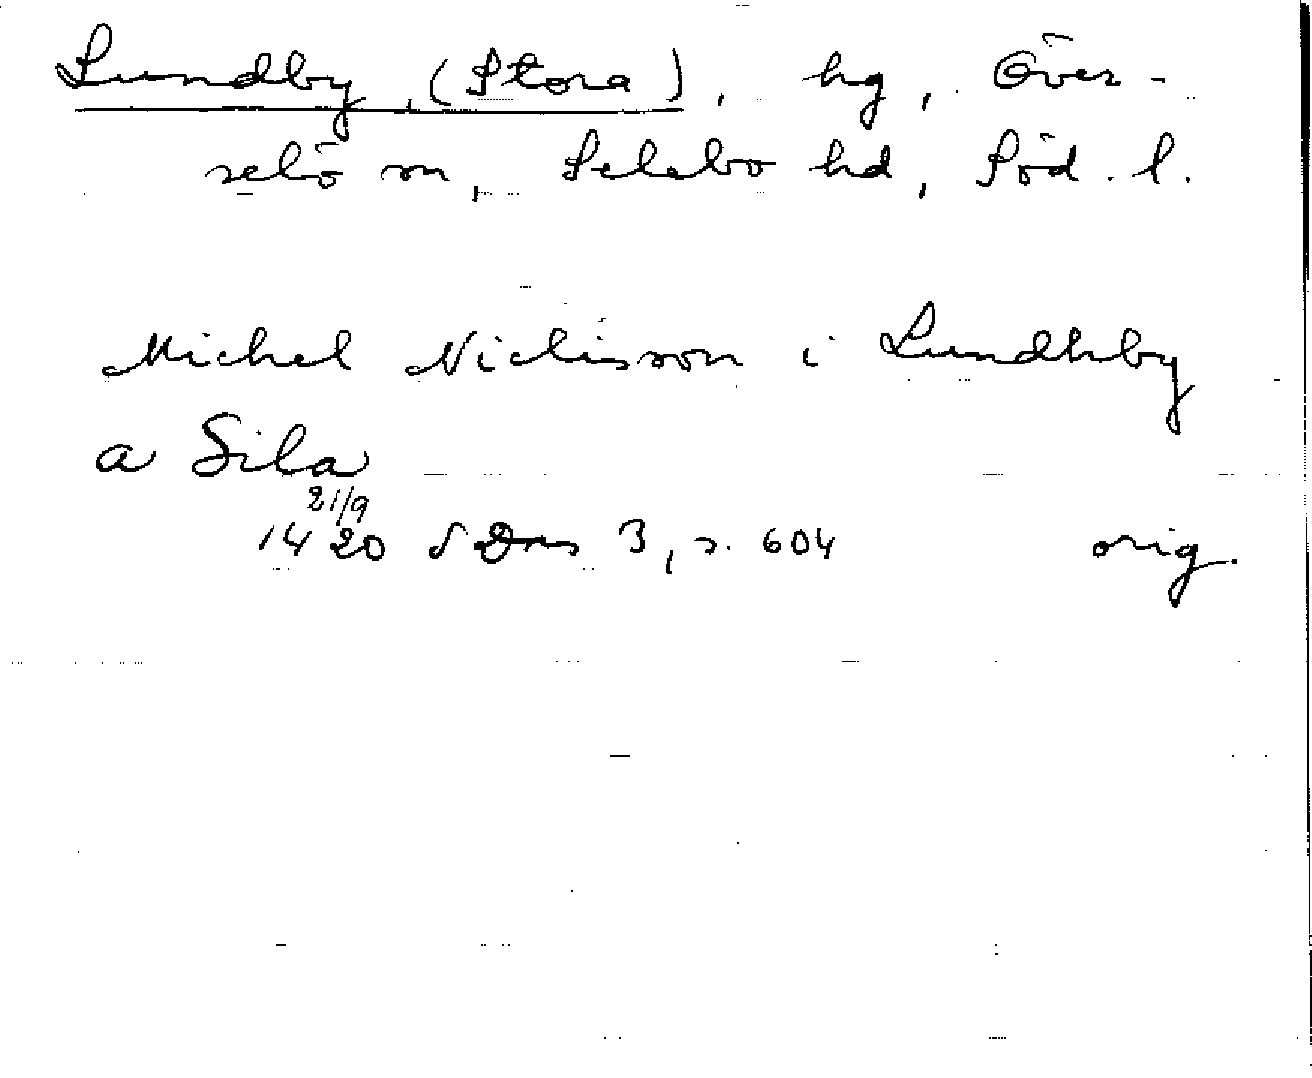 Lundby, (Stora), hg, Över-
selö sn, Selebo hd, Söd. l.
Michel Niclisson i Lundhby
a Sila
21/9
1420 SDns 3, s. 604 orig.